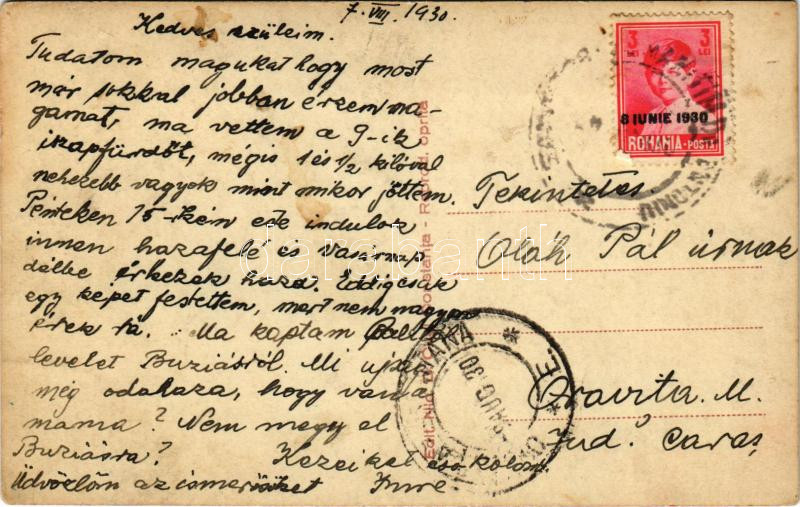 7. VIII. 1930.
Kedves szüleim.
Tudatom magukat hogy most
már sokkal jobban érzem ma-
gamat, ma vettem a 9-ik
iszapfürdőt, mégis 1 és 1/2 kilóval
nehezebb vagyok mint mikor jöttem.
Pénteken 15-ikén este indulok
innen hazafelé és vasárnap
délbe érkezek haza. Eddig csak
egy képet festettem, mert nem nagyon
érek rá. Ma kaptam
levelet Buziásról. Mi ujság
még odahaza, hogy van a
mama? Nem megy el
Buziásra? Kezeiket csókolom
Üdvözlöm az ismerősöket Imre
3 LEI 3 LEI
8 IUNIE 1930
ROMÂNIA-POSTA
Tekintetes
Oláh Pál úrnak
Oravita M.
Jud. Caraș
darabanth